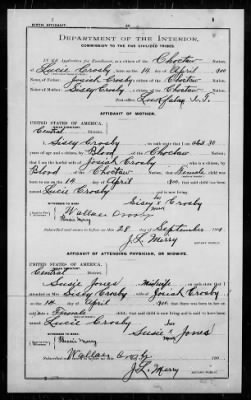 BIRTH AFFIDAVIT.
DEPARTMENT OF THE INTERIOR,
COMMISSION TO THE FIVE CIVILIZED TRIBES.
IN RE Application for Enrollment, as a citizen of the Choctaw Nation,
of Lucie Crosby, born on the 14 day of April, 190
Name of Father: Josiah Crosby a citizen of the Choctaw Nation.
Name of Mother: Sissy Crosby a citizen of the Choctaw Nation.
Post-office
AFFIDAVIT OF MOTHER.
UNITED STATES OF AMERICA,
Central District.
I, Sissy Crosby, on oath state that I am about 30
years of age and a citizen, by Blood, of the Choctaw Nation;
that I am the lawful wife of Josiah Crosby, who is a citizen, by
Blood, of the Choctaw Nation; that a Female child was
born to me on the 14 day of April, 190 , that said child has been
named Lucie Crosby, and is now living.
her
Sissy X Crosby
mark
WITNESSES TO MARK:
Wallace Crosby
Subscribed and sworn to before me this 28 day of September, 190
J. L. Merry
NOTARY PUBLIC.
AFFIDAVIT OF ATTENDING PHYSICIAN, OR MIDWIFE.
UNITED STATES OF AMERICA,
Central District.
I, Susie Jones, a Midwife, on oath state that I
attended on Mrs. Sissy Crosby, wife of Josiah Crosby
on the 14 day of April, 190 ; that there was born to her on
said date a Female child; that said child is now living and is said to have been
named Lucie Crosby
her
Susie X Jones
mark
WITNESSES TO MARK:
Wallace Crosby
J. L. Merry
NOTARY PUBLIC.